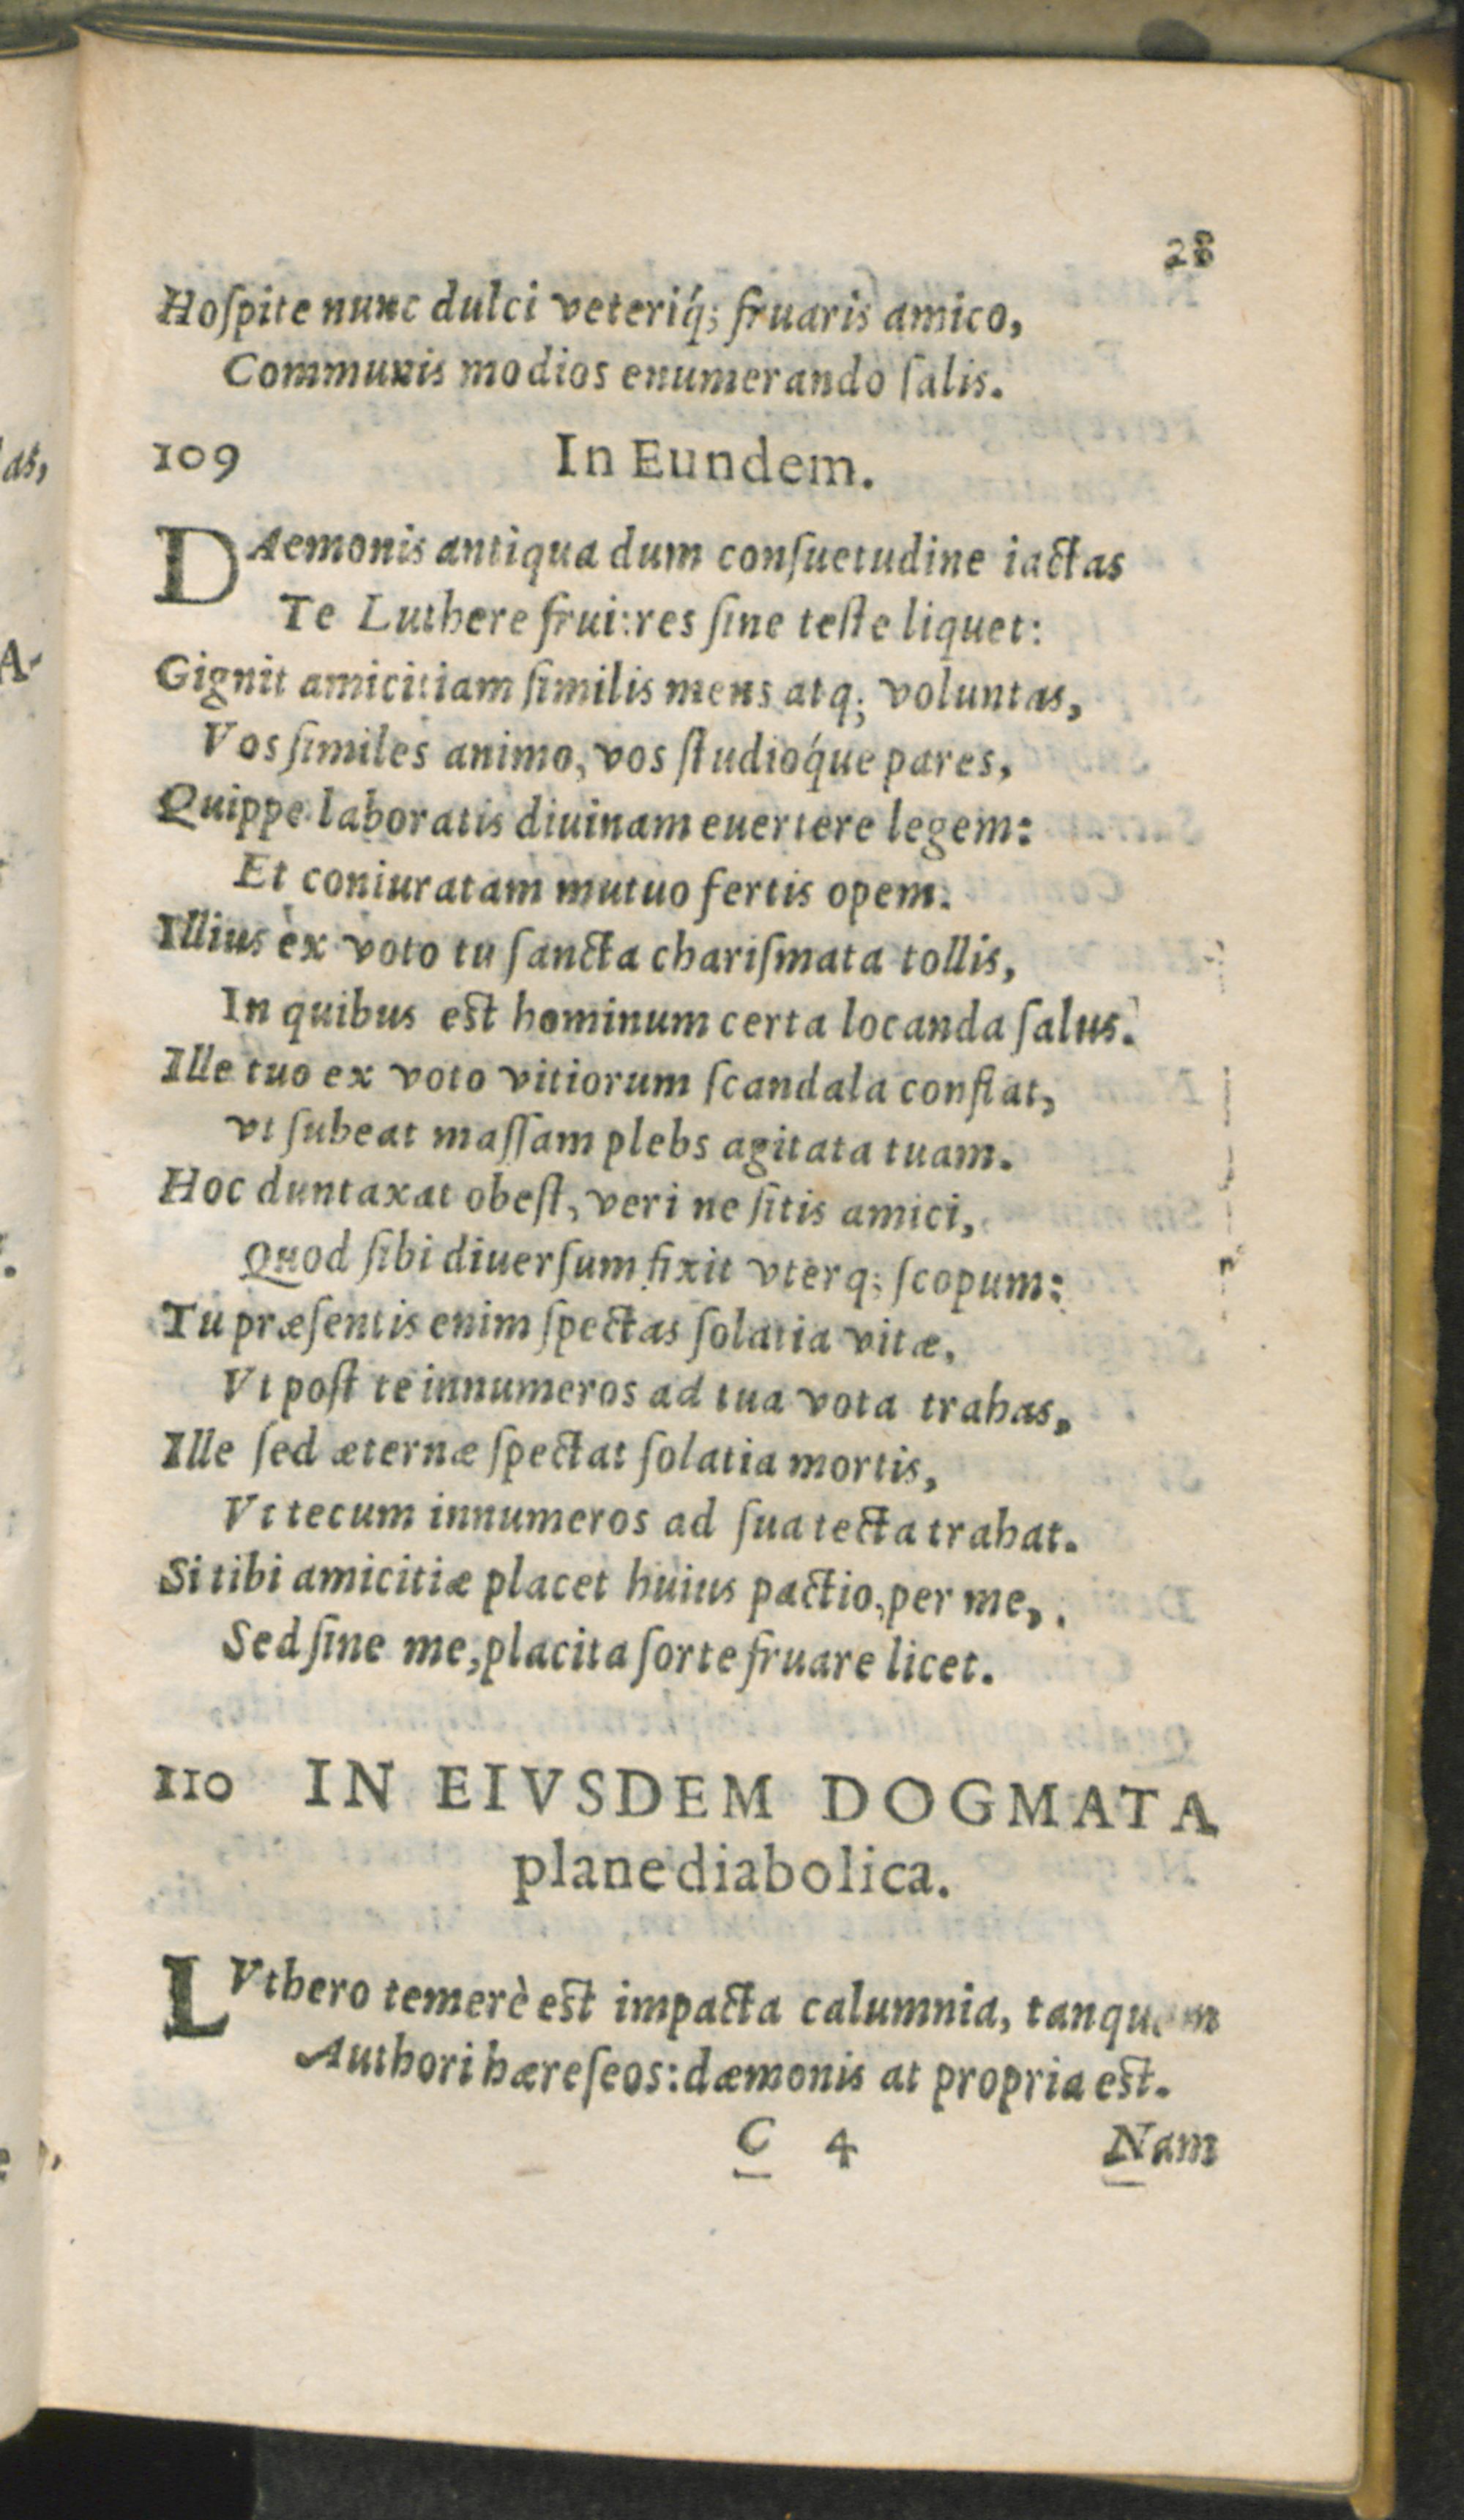 28
Hoſpite nunc dulci veteriq́; fruaris amico,
Communis modios enumerando ſalis.
109 In Eundem.
DAemonis antiqua dum conſuetudine iactas
Te Luthere frui: res ſine teſte liquet:
Gignit amicitiam ſimilis mens atq; voluntas,
Vos ſimiles animo, vos ſtudióque pares,
Quippe laboratis diuinam euertere legem:
Et coniuratam mutuo fertis opem.
Illius ex voto tu ſancta chariſmata tollis,
In quibus est hominum certa locanda ſalus.
Ille tuo ex voto vitiorum ſcandala conflat,
vt ſubeat maſſam plebs agitata tuam.
Hoc duntaxat obeſt, veri ne ſitis amici,
Quod ſibi diuerſum fixit vterq; ſcopum:
Tu præſentis enim ſpectas ſolatia vitæ,
Vt poſt te innumeros ad tua vota trahas,
Ille ſed æternæ ſpectat ſolatia mortis,
Vt tecum innumeros ad ſua tecta trahat.
Si tibi amicitiæ placet huius pactio, per me,
Sed ſine me, placita ſorte fruare licet.
110 IN EIVSDEM DOGMATA
plane diabolica.
LVthero temerè est impacta calumnia, tanquam
Authori hæreſeos: dæmonis at propria est.
C 4 Nam
as,
A-